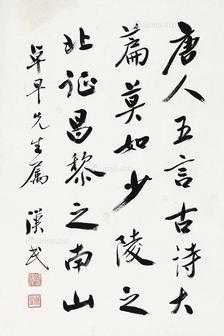 唐人五言古诗大
篇莫如少陵之
北征昌黎之南山
早先生属
汉民